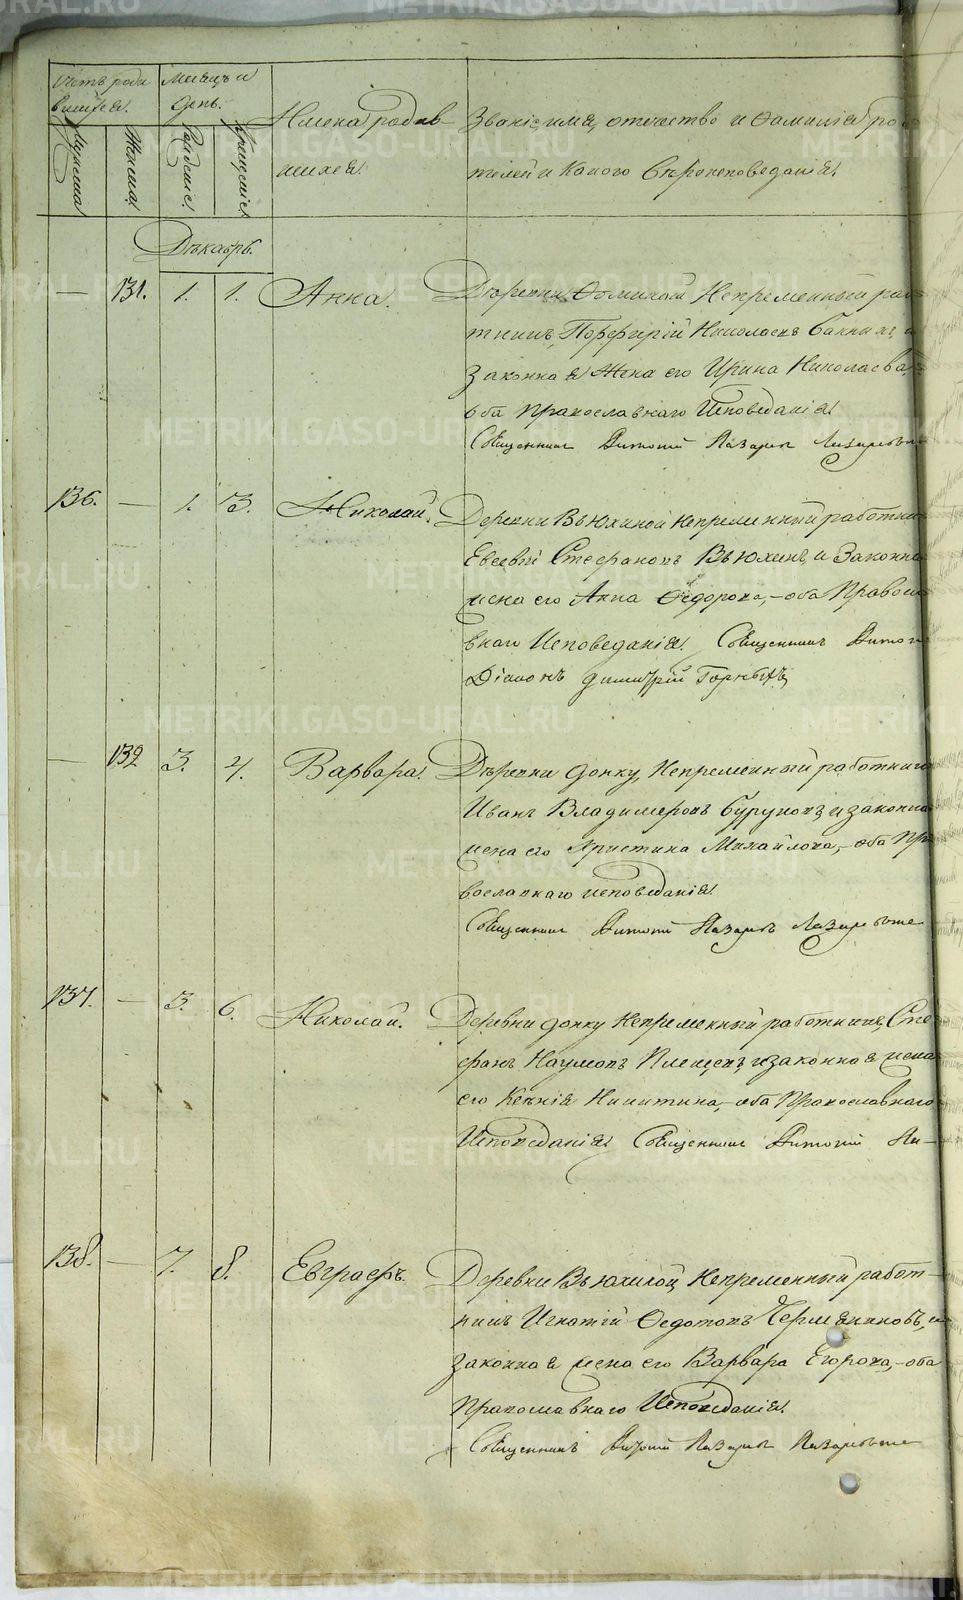 Счетъ роди
вшихся.
Мѣсяцъ и
день.
Мужеска
Женска
Рожденiе.
Крещенiе.
Имена родив
шихся.
Званiе, имя, отечество и фамилiя роди
телей и какого вѣроисповеданiя.
Декабрь.
— 131. 1. 1. Анна.
Деревни Фоминой Непременный рабо
тникъ, Порфирiй Николаевъ Банных, и
Законная Жена его Ирина Николаева,
оба православнаго Исповеданiя.
Священник Лазарев
136. — 1. 3. Николай.
Деревни Вьюхиной Непременный работни
Евсевiй Стефановъ Вьюхинъ, и Законна
жена его Анна Федорова, – оба Правосла
внаго Исповеданiя. Священникъ
Дiаконъ Димитрiй Горныхъ
— 132 3. 4. Варвара.
Деревни Непременный работникъ
Иванъ Владимеровъ Бурунов, и законна
жена его Христина Михайлова, – оба Пра
вославнаго исповеданiя.
Священник Лазарев
137. — 3. 6. Николай.
Деревни Непременный работникъ, Сте
фанъ Наумовъ Плещев, и законная жена
его Ксенiя Никитина, – оба Православнаго
Исповеданiя. Священник
138. — 7. 8. Евграфъ.
Деревни Вьюхиной, Непременный работ–
никъ Игнатiй Федотовъ Чермяниновъ, и
законная жена его Варвара Егорова, – оба
Православнаго Исповеданiя.
Священникъ Лазарев
METRIKI.GASO-URAL.RU